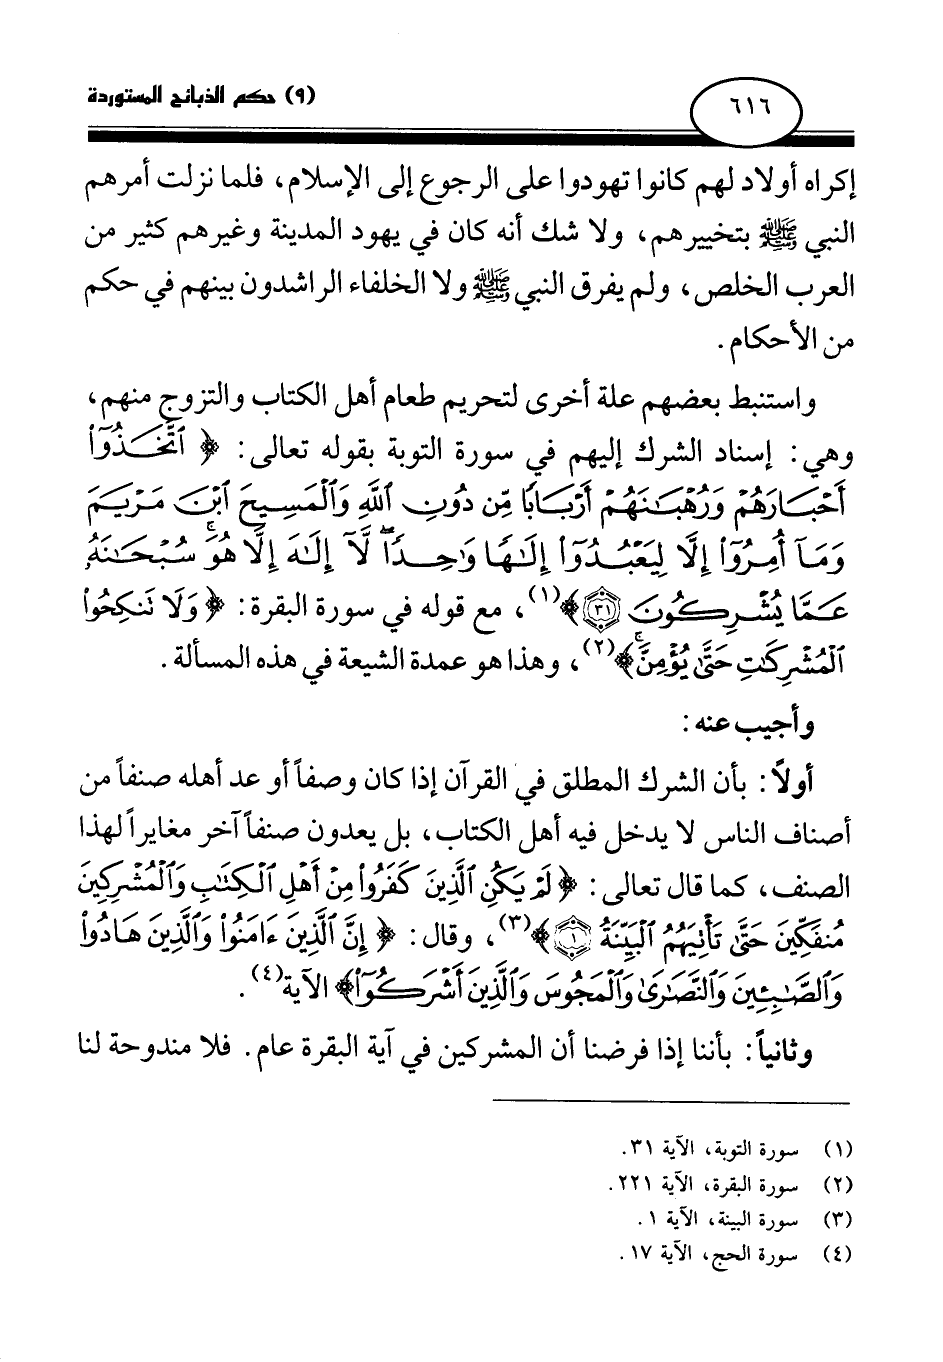 ٦١٦
(٩) حكم الذبائح المستوردة
إكراه أولاد لهم كانوا تهودوا على الرجوع إلى الإسلام، فلما نزلت أمرهم
النبي ﷺ بتخييرهم، ولا شك أنه كان في يهود المدينة وغيرهم كثير من
العرب الخلص، ولم يفرق النبي ﷺ ولا الخلفاء الراشدون بينهم في حكم
من الأحكام.
واستنبط بعضهم علة أخرى لتحريم طعام أهل الكتاب والتزوج منهم،
وهي: إسناد الشرك إليهم في سورة التوبة بقوله تعالى: ﴿ ٱتَّخَذُوٓا۟
أَحْبَارَهُمْ وَرُهْبَـٰنَهُمْ أَرْبَابًا مِّن دُونِ ٱللَّهِ وَٱلْمَسِيحَ ٱبْنَ مَرْيَمَ
وَمَآ أُمِرُوٓا۟ إِلَّا لِيَعْبُدُوٓا۟ إِلَـٰهًا وَٰحِدًا ۖ لَّآ إِلَـٰهَ إِلَّا هُوَ ۚ سُبْحَـٰنَهُۥ
عَمَّا يُشْرِكُونَ ٣١﴾(١)، مع قوله في سورة البقرة: ﴿ وَلَا تَنكِحُوا۟
ٱلْمُشْرِكَـٰتِ حَتَّىٰ يُؤْمِنَّ ۚ﴾(٢)، وهذا هو عمدة الشيعة في هذه المسألة.
وأجيب عنه:
أولاً: بأن الشرك المطلق في القرآن إذا كان وصفاً أو عد أهله صنفاً من
أصناف الناس لا يدخل فيه أهل الكتاب، بل يعدون صنفاً آخر مغايراً لهذا
الصنف، كما قال تعالى: ﴿ لَمْ يَكُنِ ٱلَّذِينَ كَفَرُوا۟ مِنْ أَهْلِ ٱلْكِتَـٰبِ وَٱلْمُشْرِكِينَ
مُنفَكِّينَ حَتَّىٰ تَأْتِيَهُمُ ٱلْبَيِّنَةُ ١﴾(٣)، وقال: ﴿ إِنَّ ٱلَّذِينَ ءَامَنُوا۟ وَٱلَّذِينَ هَادُوا۟
وَٱلصَّـٰبِـِٔينَ وَٱلنَّصَـٰرَىٰ وَٱلْمَجُوسَ وَٱلَّذِينَ أَشْرَكُوٓا۟﴾ الآية(٤).
وثانياً: بأننا إذا فرضنا أن المشركين في آية البقرة عام. فلا مندوحة لنا
(١) سورة التوبة، الآية ٣١.
(٢) سورة البقرة، الآية ٢٢١.
(٣) سورة البينة، الآية ١.
(٤) سورة الحج، الآية ١٧.